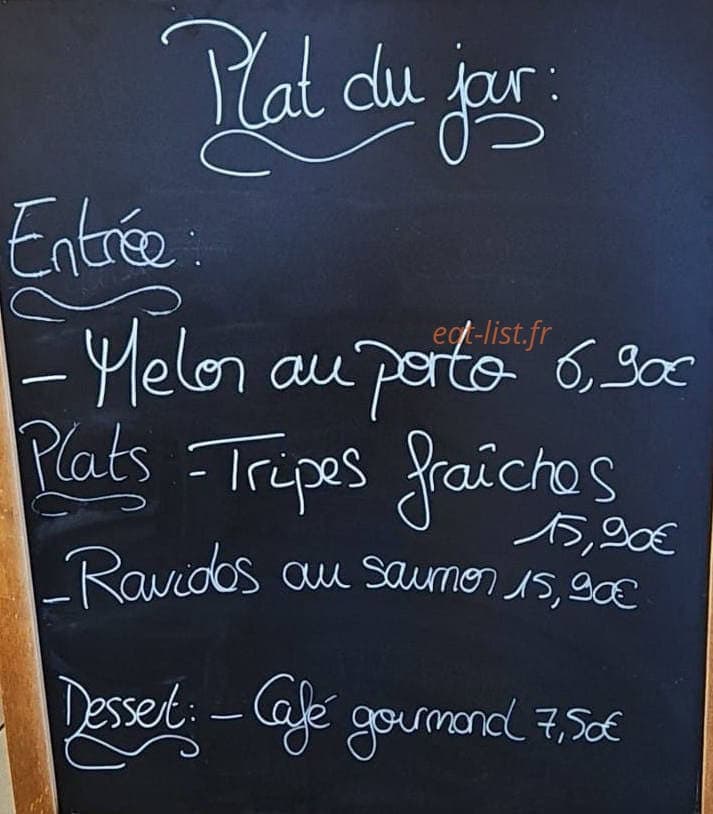 Plat du jour:
Entrée:
eat-list.fr
- Melon au porto 6,90€
Plats :- Tripes fraîches
15,90€
- Ravioles au saumon 15,90€
Dessert: - Café gourmand 7,50€